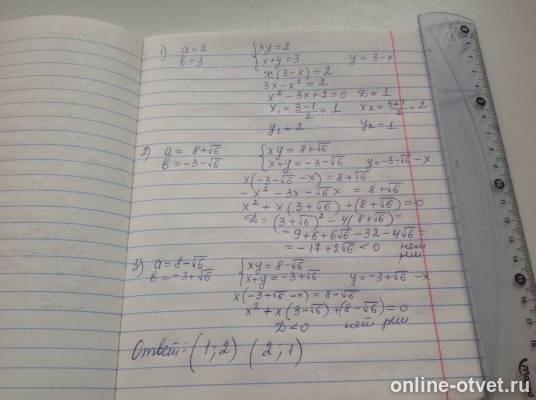 1) a = 2 {xy = 2
b = 3 {x+y = 3 y = 3-x
x(3-x) = 2
3x-x² = 2
x² - 3x + 2 = 0 D = 1
x₁ = (3-1)/2 = 1 x₂ = (3+1)/2 = 2
y₁ = 2 y₂ = 1
2) a = 8+√6 {xy = 8+√6
b = -3-√6 {x+y = -3-√6 y = -3-√6 -x
x(-3-√6 -x) = 8+√6
-x² - 3x - √6 x = 8+√6
x² + x(3+√6) + (8+√6) = 0
D = (3+√6)² - 4(8+√6) =
= 9+6+6√6 - 32 - 4√6 =
= -17+2√6 < 0 нет
реш
3) a = 8-√6 {xy = 8-√6
b = -3+√6 {x+y = -3+√6 y = -3+√6 -x
x(-3+√6 -x) = 8-√6
x² + x(3-√6) + (8-√6) = 0
D < 0 нет реш
Ответ: (1; 2) (2; 1)
online-otvet.ru